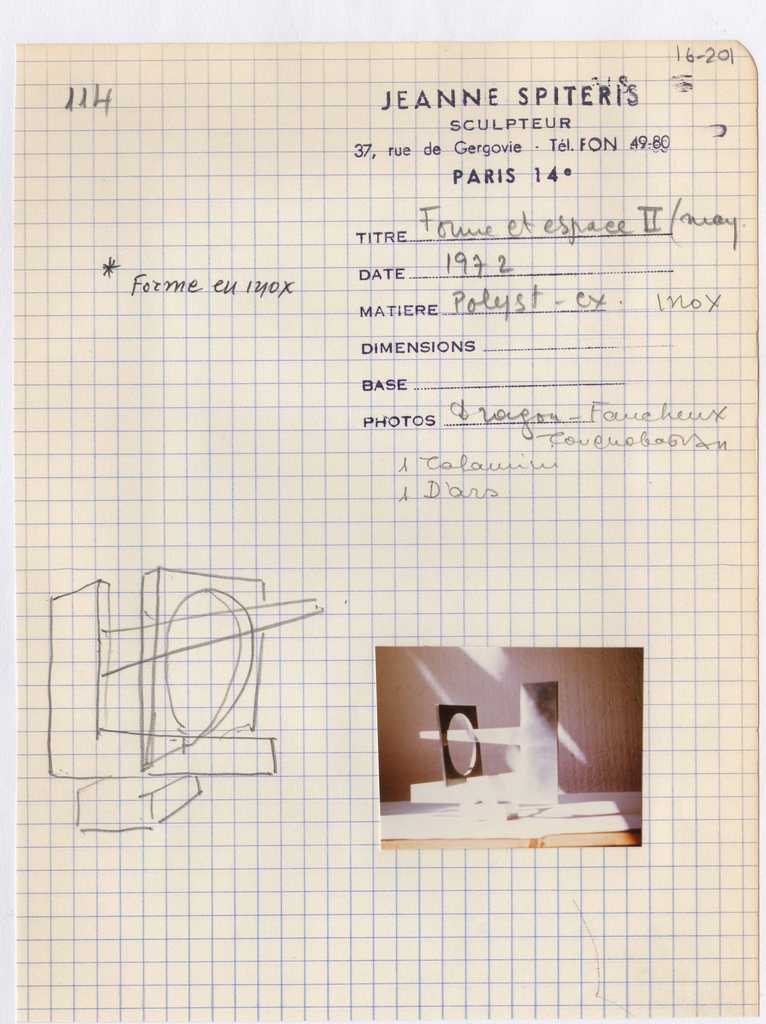 16-201
114
JEANNE SPITERIS
SCULPTEUR
37, rue de Gergovie - Tél. FON 49-80
PARIS 14e
TITRE Forme et espace II / moy.
DATE 1972
* Forme en inox
MATIERE Polyst - ex. Inox
DIMENSIONS
BASE
PHOTOS Dragon - Faucheux
1 Calamini
1 D'ars